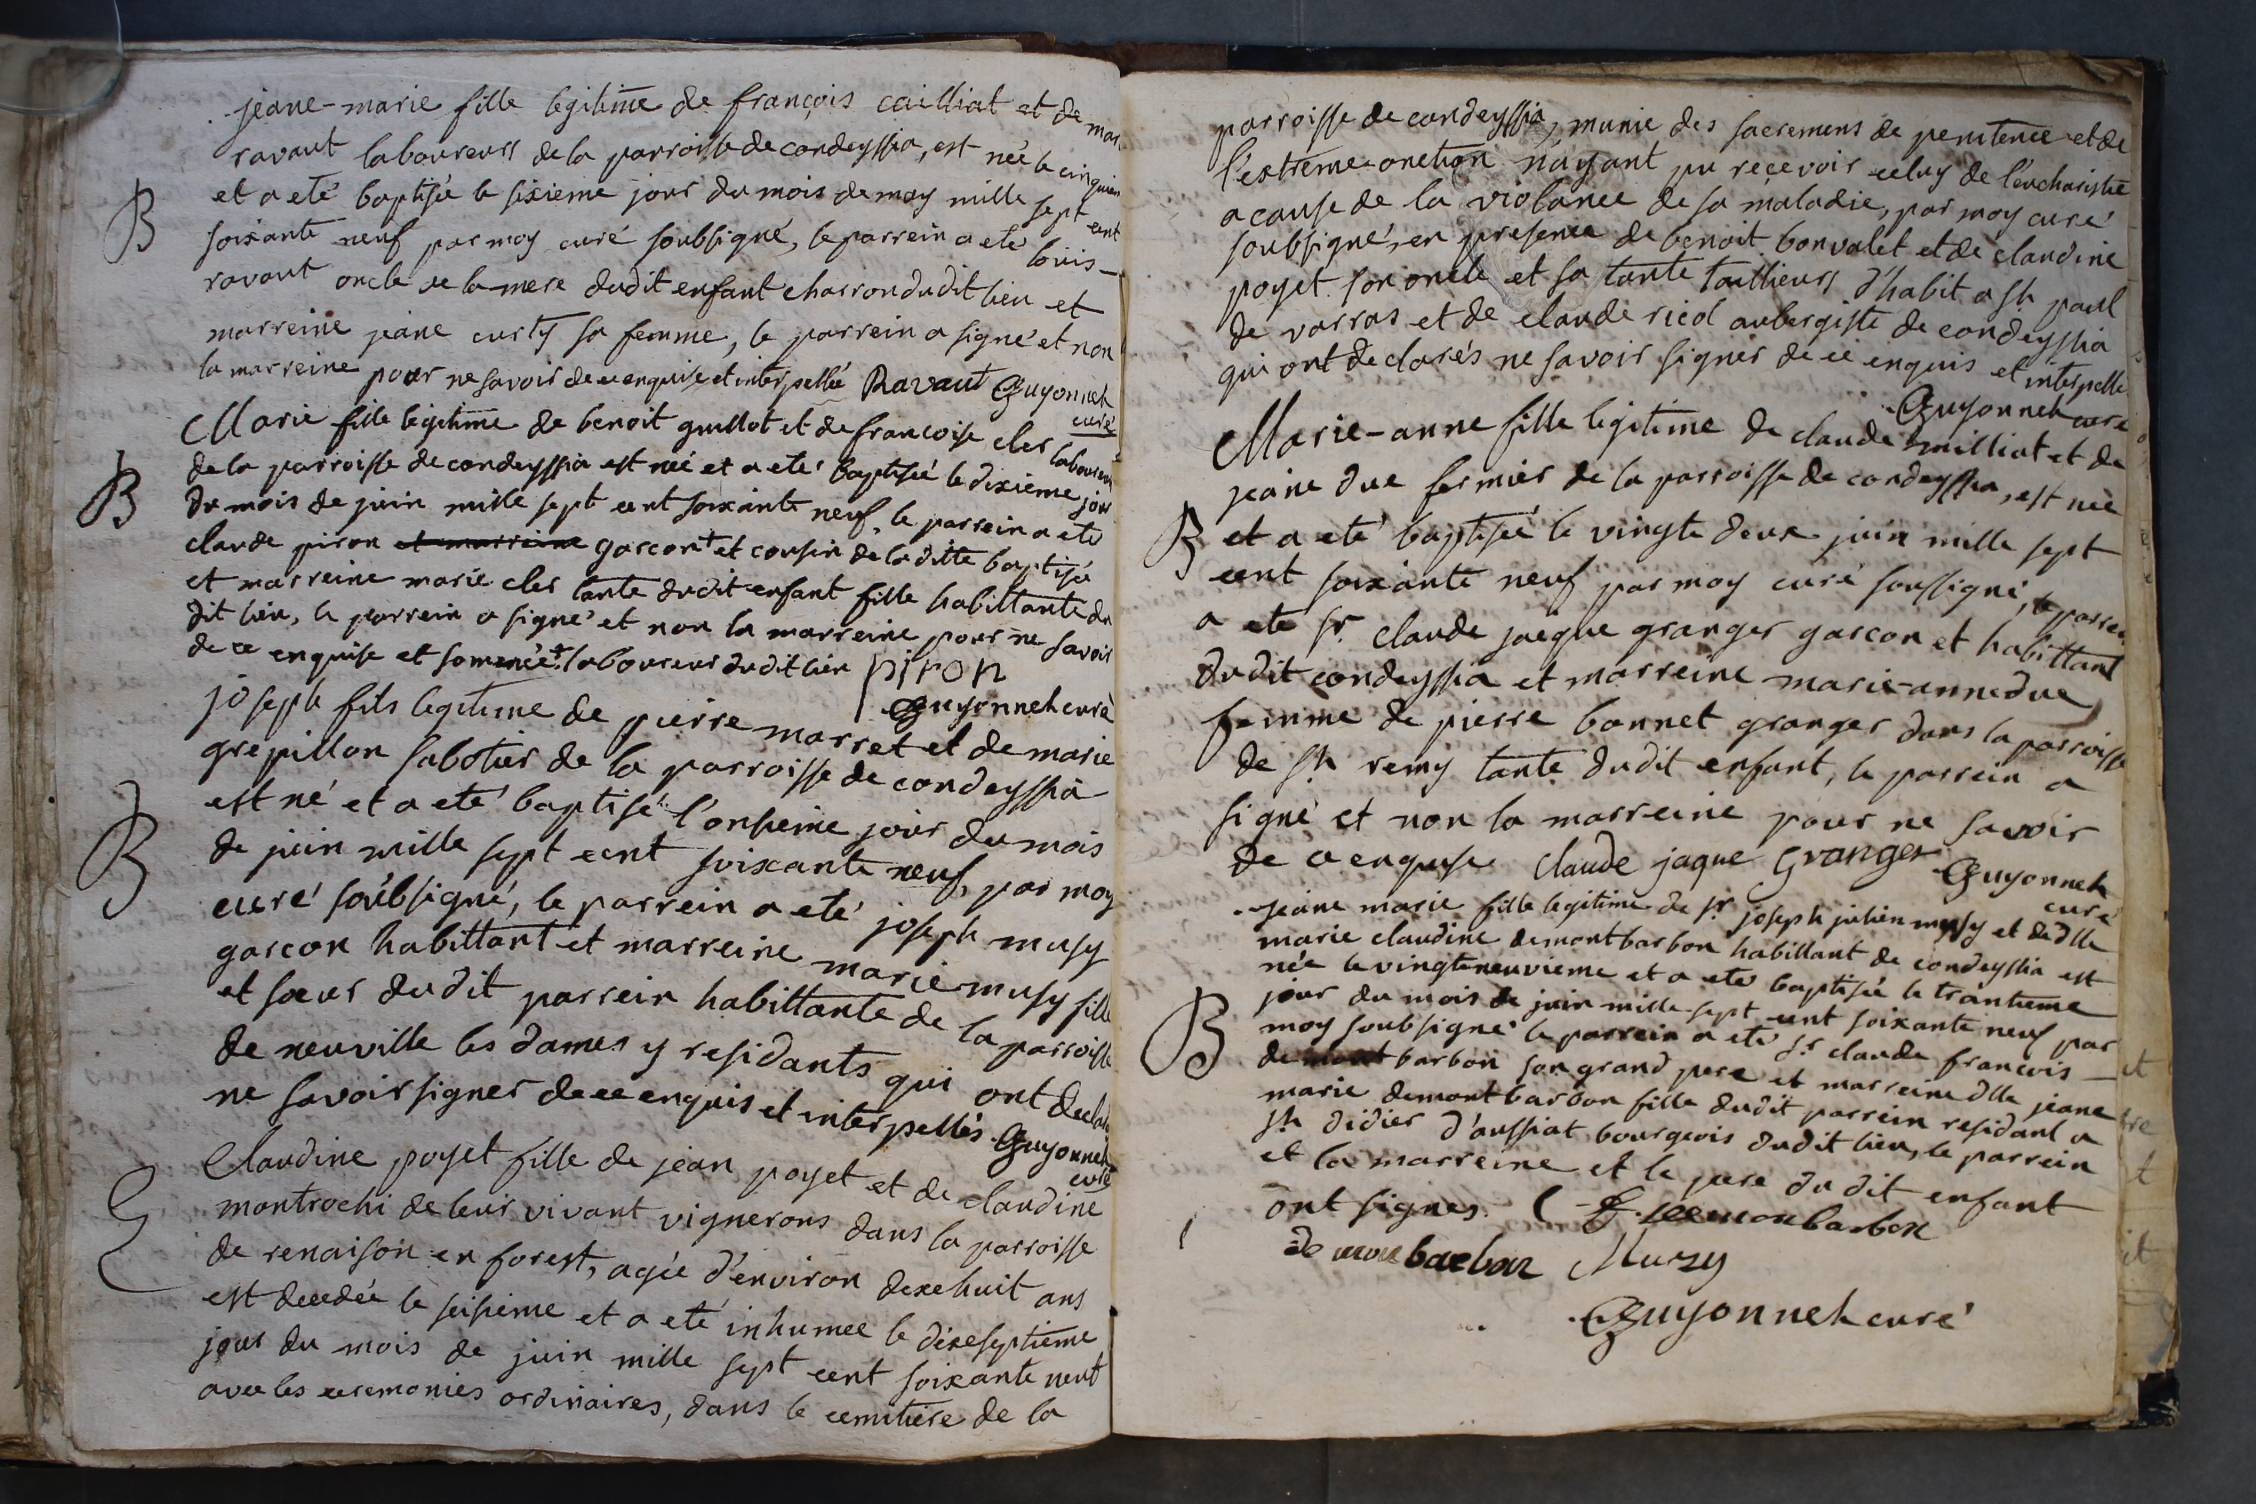 jeane-marie fille legitime de françois cailliat et de mar
ravaut laboureurs de la parroisse de condeyssia, est née le cinquiem
et a eté baptisée le sixieme jour du mois de may mille sept cent
B
soixante neuf par moy curé soubsigné, le parrein a eté louis
ravaut oncle de la mere dudit enfant charron dudit lieu et
marreine jeane curty sa femme, le parrein a signé et non
la marreine pour ne savoir de ce enquise et interpellée Ravaut Guyonnet
curé
Marie fille legitime de benoit guillot et de francoise cler laboureurs
de la parroisse de condeyssia est née et a eté baptisée le dixieme jour
B
du mois de juin mille sept cent soixante neuf, le parrein a eté
claude piron et marreine garcon + et cousin de la ditte baptisée
et marreine marie cler tante dudit enfant fille habittante du
dit lieu, le parrein a signé et non la marreine pour ne savoir
de ce enquise et somencée + laboureur dudit lieu piron
Guyonnet curé
joseph fils legitime de pierre marret et de marie
grepillon sabotier de la parroisse de condeyssia
est né et a eté baptisé l'onsieme jour du mois
B
de juin mille sept cent soixante neuf, par moy
curé soubsigné, le parrein a eté joseph musy
garcon habittant et marreine marie musy fille
et soeur dudit parrein habittante de la parroisse
de neuville les dames y residants qui ont declaré
ne savoir signer de ce enquis et interpellés Guyonnet
curé
Claudine poyet fille de jean poyet et de claudine
montrochi de leur vivant vignerons dans la parroisse
de renaison en forest, agée d'environ dixehuit ans
est decedée le seisieme et a eté inhumee le dixeseptieme
jour du mois de juin mille sept cent soixante neuf
avec les ceremonies ordinaires, dans le cemitiere de la
parroisse de condeyssia, munie des sacremens de penitence et de
l'extreme-onction n'ayant pu reçevoir celuy de l'eucharistie
a cause de la violance de sa maladie, par moy curé
soubsigné, en presence de benoit bonvalet et de claudine
poyet son oncle et sa tante taillieurs d'habit a st paul
de varras et de claude ricol aubergiste de condeyssia
qui ont declarés ne savoir signer de ce enquis et interpelle
Guyonnet curé
Marie-anne fille legitime de claude milliat et de
jeane due fermier de la parroisse de condeyssia, est née
B
et a eté baptisée le vingte deux juin mille sept
cent soixante neuf par moy curé soussigné, le parrei
a ete sr claude jacque granger garcon et habittant
dudit condeyssia et marreine marie-anne due
femme de pierre bonnet granger dans la parroisse
de st remy tante dudit enfant, le parrein a
signé et non la marreine pour ne savoir
de ce enquise Claude jaque Granger
Guyonnet
curé
jeane marie fille legitime de sr joseph julien musy et de dlle
marie claudine demontbarbon habittant de condeyssia est
née le vingtneuvieme et a eté baptisée le trantieme
B
jour du mois de juin mille sept cent soixante neuf par
moy soubsigné le parrein a eté sr claude francois
demontbarbon son grand pere et marreine dlle jeane
marie demontbarbon fille dudit parrein residant a
st didier d'aussiat bourgeois dudit lieu, le parrein
et la marreine et le pere du dit enfant
ont signes.
de monbarbon Muzy
Guyonnet curé